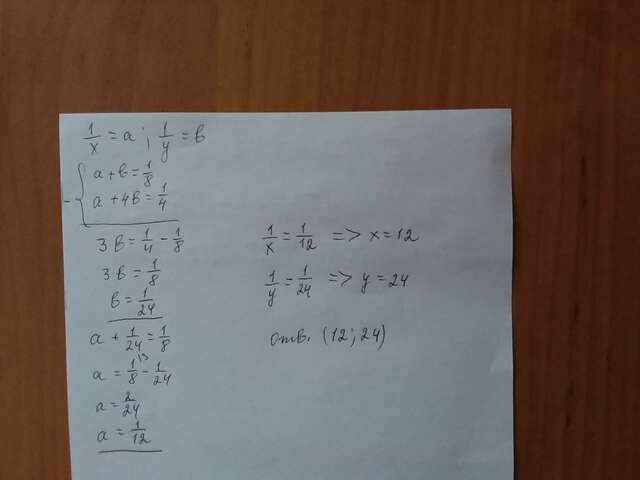 1/x = a ; 1/y = в
a + в = 1/8
a + 4в = 1/4
3в = 1/4 - 1/8
3в = 1/8
в = 1/24
a + 1/24 = 1/8
a = 1/8 \3 - 1/24
a = 2/24
a = 1/12
1/x = 1/12 => x = 12
1/y = 1/24 => y = 24
отв. (12; 24)